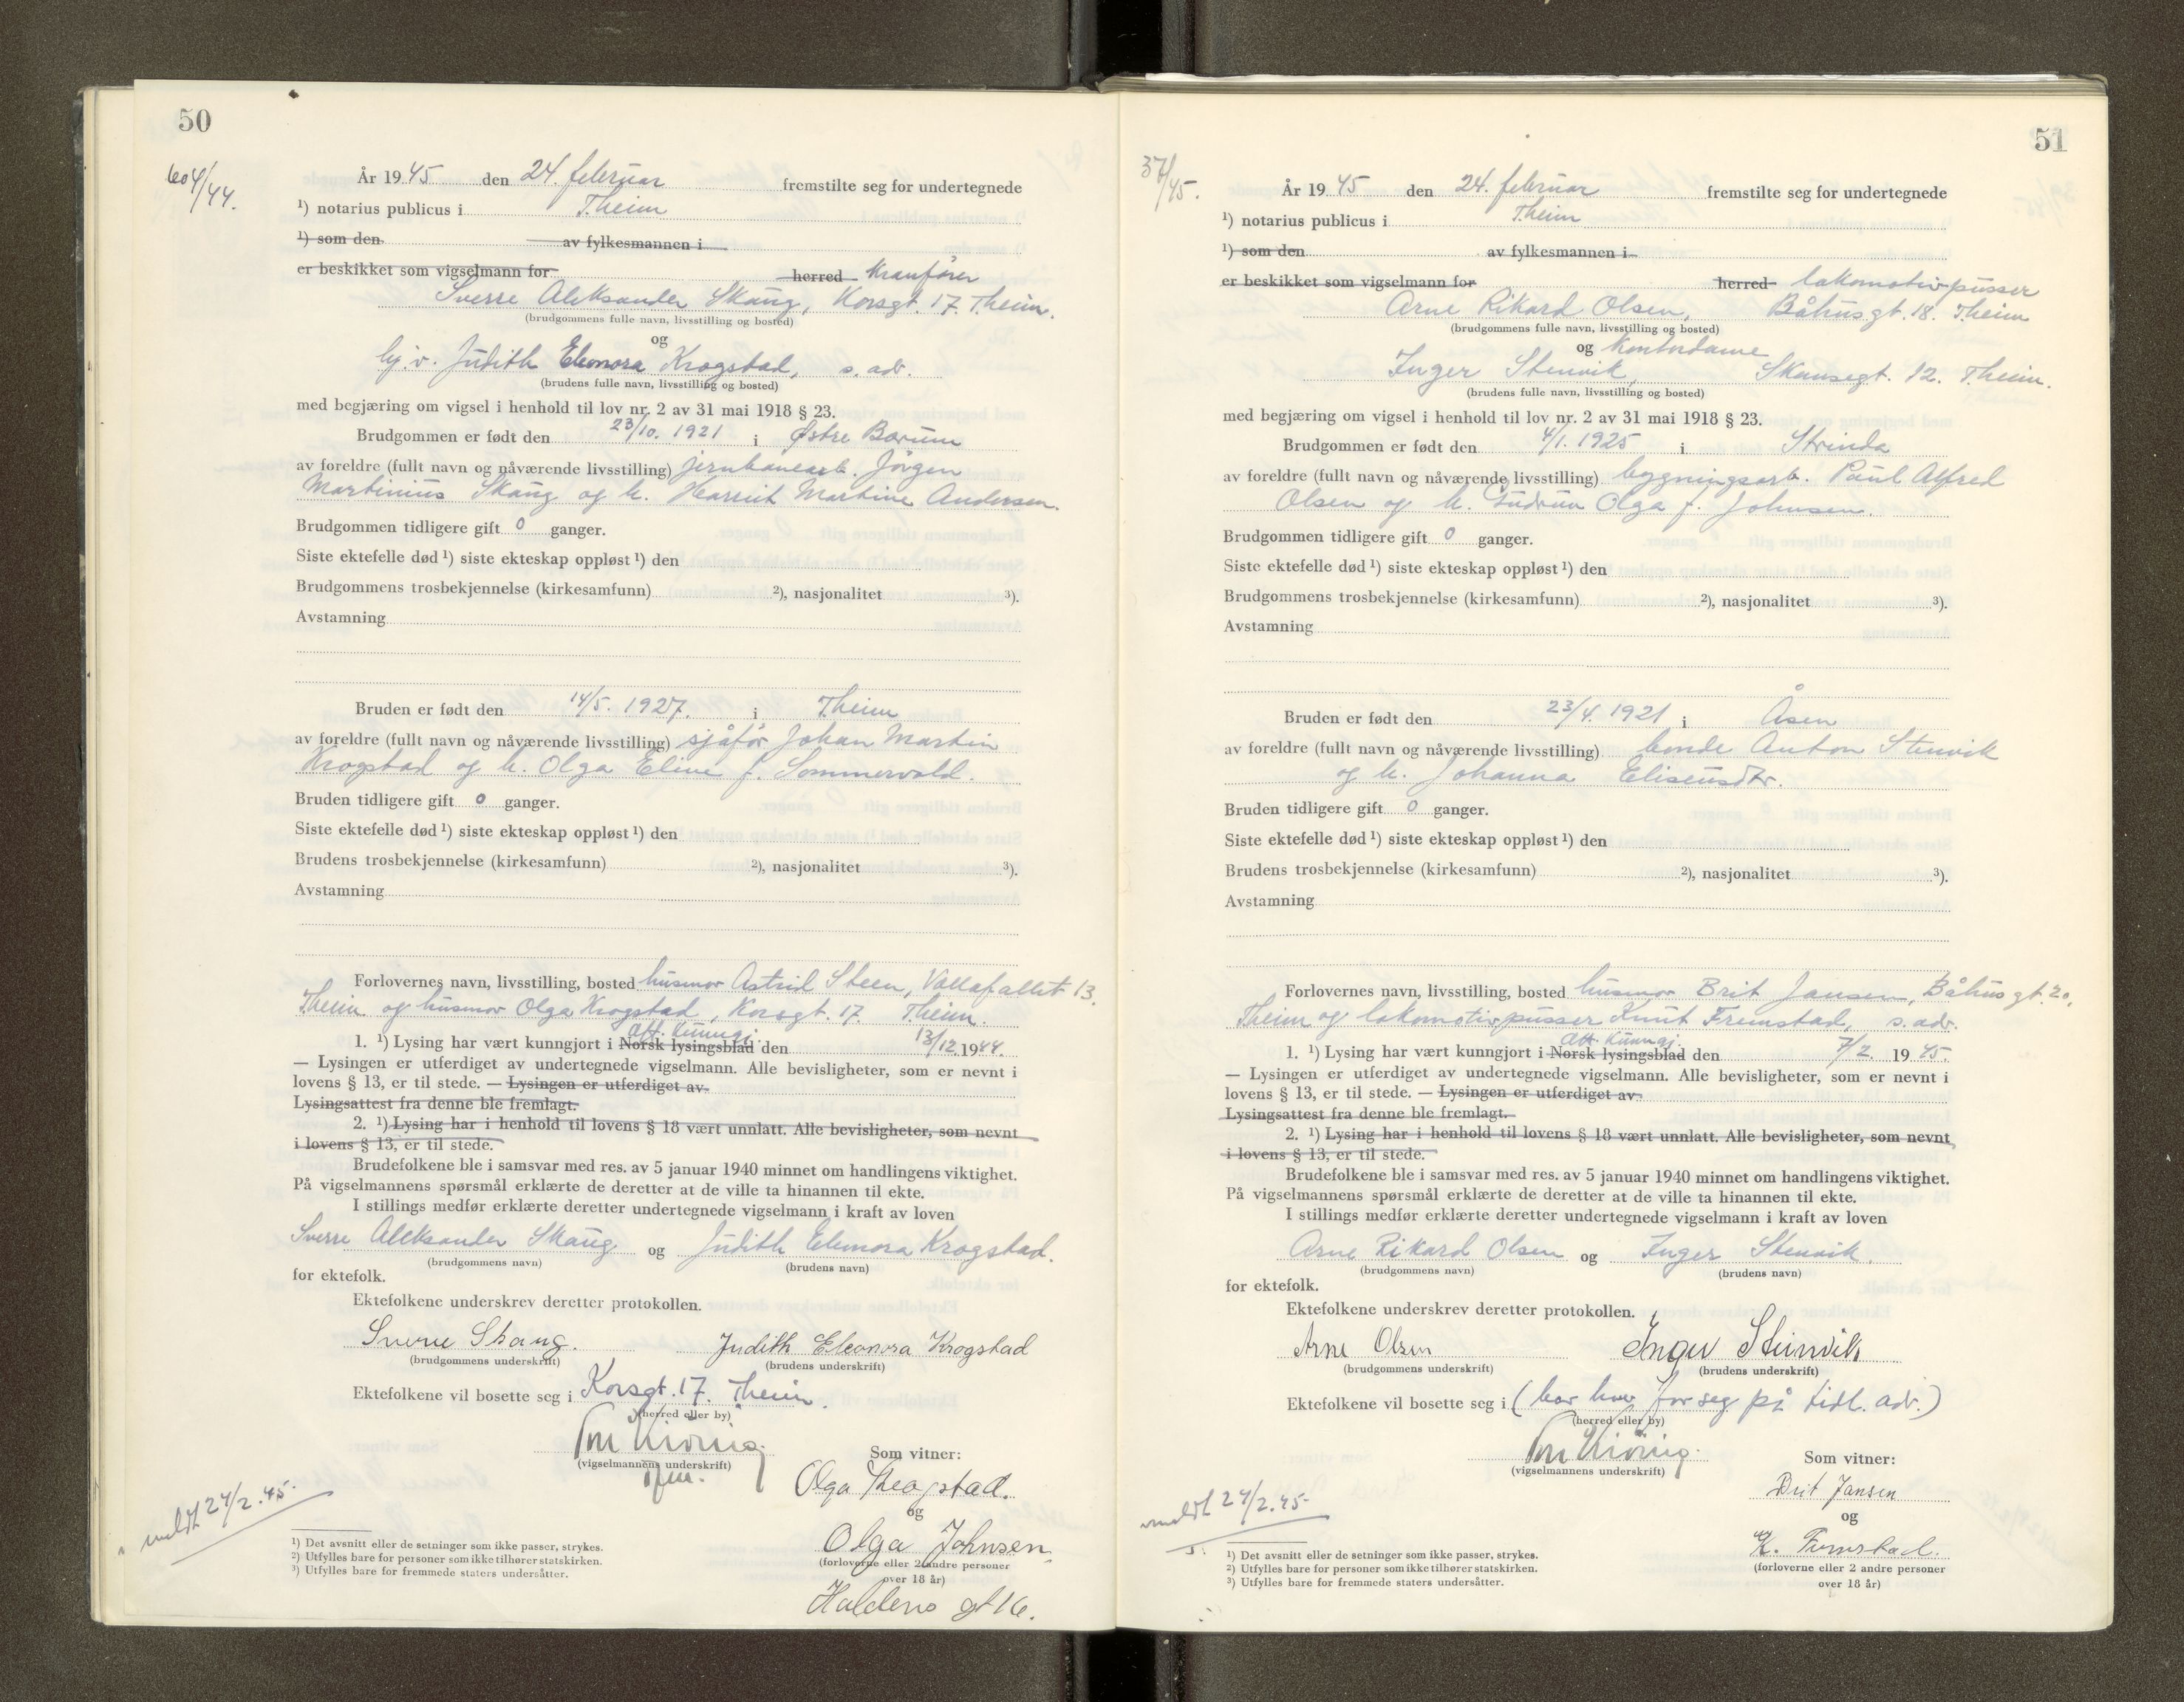 50
604/44.
År 1945 den 24. februar fremstilte seg for undertegnede
¹) notarius publicus i T.heim
¹) som den av fylkesmannen i
er beskikket som vigselmann for herred Kranfører
Sverre Aleksander Skaug, Korsgt. 17. T.heim.
(brudgommens fulle navn, livsstilling og bosted)
og
hj.v. Judith Eleonora Krogstad, s. adr.
(brudens fulle navn, livsstilling og bosted)
med begjæring om vigsel i henhold til lov nr. 2 av 31 mai 1918 § 23.
Brudgommen er født den 23/10. 1921 i Østre Bærum
av foreldre (fullt navn og nåværende livsstilling) jernbanearb. Jörgen
Martinius Skaug og h. Harriet Martine Andersen.
Brudgommen tidligere gift 0 ganger.
Siste ektefelle død ¹) siste ekteskap oppløst ¹) den
Brudgommens trosbekjennelse (kirkesamfunn) ²), nasjonalitet ³).
Avstamning
Bruden er født den 14/5. 1927. i T.heim
av foreldre (fullt navn og nåværende livsstilling) sjåfør Johan Martin
Krogstad og h. Olga Eline f. Sommervold.
Bruden tidligere gift 0 ganger.
Siste ektefelle død ¹) siste ekteskap oppløst ¹) den
Brudens trosbekjennelse (kirkesamfunn) ²), nasjonalitet ³).
Avstamning
Forlovernes navn, livsstilling, bosted husmor Astrid Steen, Vollafallet 13.
T.heim og husmor Olga Krogstad, Korsgt. 17. T.heim.
Off. Kunngj.
1. ¹) Lysing har vært kunngjort i Norsk lysingsblad den 13/12. 1944.
— Lysingen er utferdiget av undertegnede vigselmann. Alle bevisligheter, som er nevnt i
lovens § 13, er til stede. — Lysingen er utferdiget av
Lysingsattest fra denne ble fremlagt.
2. ¹) Lysing har i henhold til lovens § 18 vært unnlatt. Alle bevisligheter, som nevnt
i lovens § 13, er til stede.
Brudefolkene ble i samsvar med res. av 5 januar 1940 minnet om handlingens viktighet.
På vigselmannens spørsmål erklærte de deretter at de ville ta hinannen til ekte.
I stillings medfør erklærte deretter undertegnede vigselmann i kraft av loven
Sverre Aleksander Skaug og Judith Eleonora Krogstad.
(brudgommens navn) (brudens navn)
for ektefolk.
Ektefolkene underskrev deretter protokollen.
Sverre Skaug. Judith Eleonora Krogstad
(brudgommens underskrift) (brudens underskrift)
Ektefolkene vil bosette seg i Korsgt. 17. T.heim.
(herred eller by)
(vigselmannens underskrift)
Som vitner:
Olga Krogstad.
og
Olga Johnsen
(forloverne eller 2 andre personer
over 18 år)
Haldens gt 16.
meldt 24/2.45.
¹) Det avsnitt eller de setninger som ikke passer, strykes.
²) Utfylles bare for personer som ikke tilhører statskirken.
³) Utfylles bare for fremmede staters undersåtter.
51
37/45.
År 1945 den 24. februar fremstilte seg for undertegnede
¹) notarius publicus i T.heim
¹) som den av fylkesmannen i
er beskikket som vigselmann for herred lokomotivpusser
Arne Rikard Olsen, Båhusgt. 18. T.heim
(brudgommens fulle navn, livsstilling og bosted)
og Kontordame
Inger Stenvik, Skansegt. 12. T.heim.
(brudens fulle navn, livsstilling og bosted)
med begjæring om vigsel i henhold til lov nr. 2 av 31 mai 1918 § 23.
Brudgommen er født den 4/1. 1925 i Strinda
av foreldre (fullt navn og nåværende livsstilling) bygningsarb. Paul Alfred
Olsen og h. Gudrun Olga f. Johnsen.
Brudgommen tidligere gift 0 ganger.
Siste ektefelle død ¹) siste ekteskap oppløst ¹) den
Brudgommens trosbekjennelse (kirkesamfunn) ²), nasjonalitet ³).
Avstamning
Bruden er født den 23/4. 1921 i Åsen
av foreldre (fullt navn og nåværende livsstilling) bonde Anton Stenvik
og h. Johanna Eliseusdtr.
Bruden tidligere gift 0 ganger.
Siste ektefelle død ¹) siste ekteskap oppløst ¹) den
Brudens trosbekjennelse (kirkesamfunn) ²), nasjonalitet ³).
Avstamning
Forlovernes navn, livsstilling, bosted husmor Brit Jansen, Båhusgt. 20,
T.heim og lokomotivpusser Knut Fremstad, s. adr.
Off. Kunngj.
1. ¹) Lysing har vært kunngjort i Norsk lysingsblad den 7/2. 1945.
— Lysingen er utferdiget av undertegnede vigselmann. Alle bevisligheter, som er nevnt i
lovens § 13, er til stede. — Lysingen er utferdiget av
Lysingsattest fra denne ble fremlagt.
2. ¹) Lysing har i henhold til lovens § 18 vært unnlatt. Alle bevisligheter, som nevnt
i lovens § 13, er til stede.
Brudefolkene ble i samsvar med res. av 5 januar 1940 minnet om handlingens viktighet.
På vigselmannens spørsmål erklærte de deretter at de ville ta hinannen til ekte.
I stillings medfør erklærte deretter undertegnede vigselmann i kraft av loven
Arne Rikard Olsen og Inger Stenvik.
(brudgommens navn) (brudens navn)
for ektefolk.
Ektefolkene underskrev deretter protokollen.
Arne Olsen Inger Steinvik
(brudgommens underskrift) (brudens underskrift)
Ektefolkene vil bosette seg i (bor hver for seg på tidl. adr.)
(herred eller by)
(vigselmannens underskrift)
Som vitner:
Brit Jansen
og
K. Fremstad.
(forloverne eller 2 andre personer
over 18 år)
meldt 24/2.45
¹) Det avsnitt eller de setninger som ikke passer, strykes.
²) Utfylles bare for personer som ikke tilhører statskirken.
³) Utfylles bare for fremmede staters undersåtter.